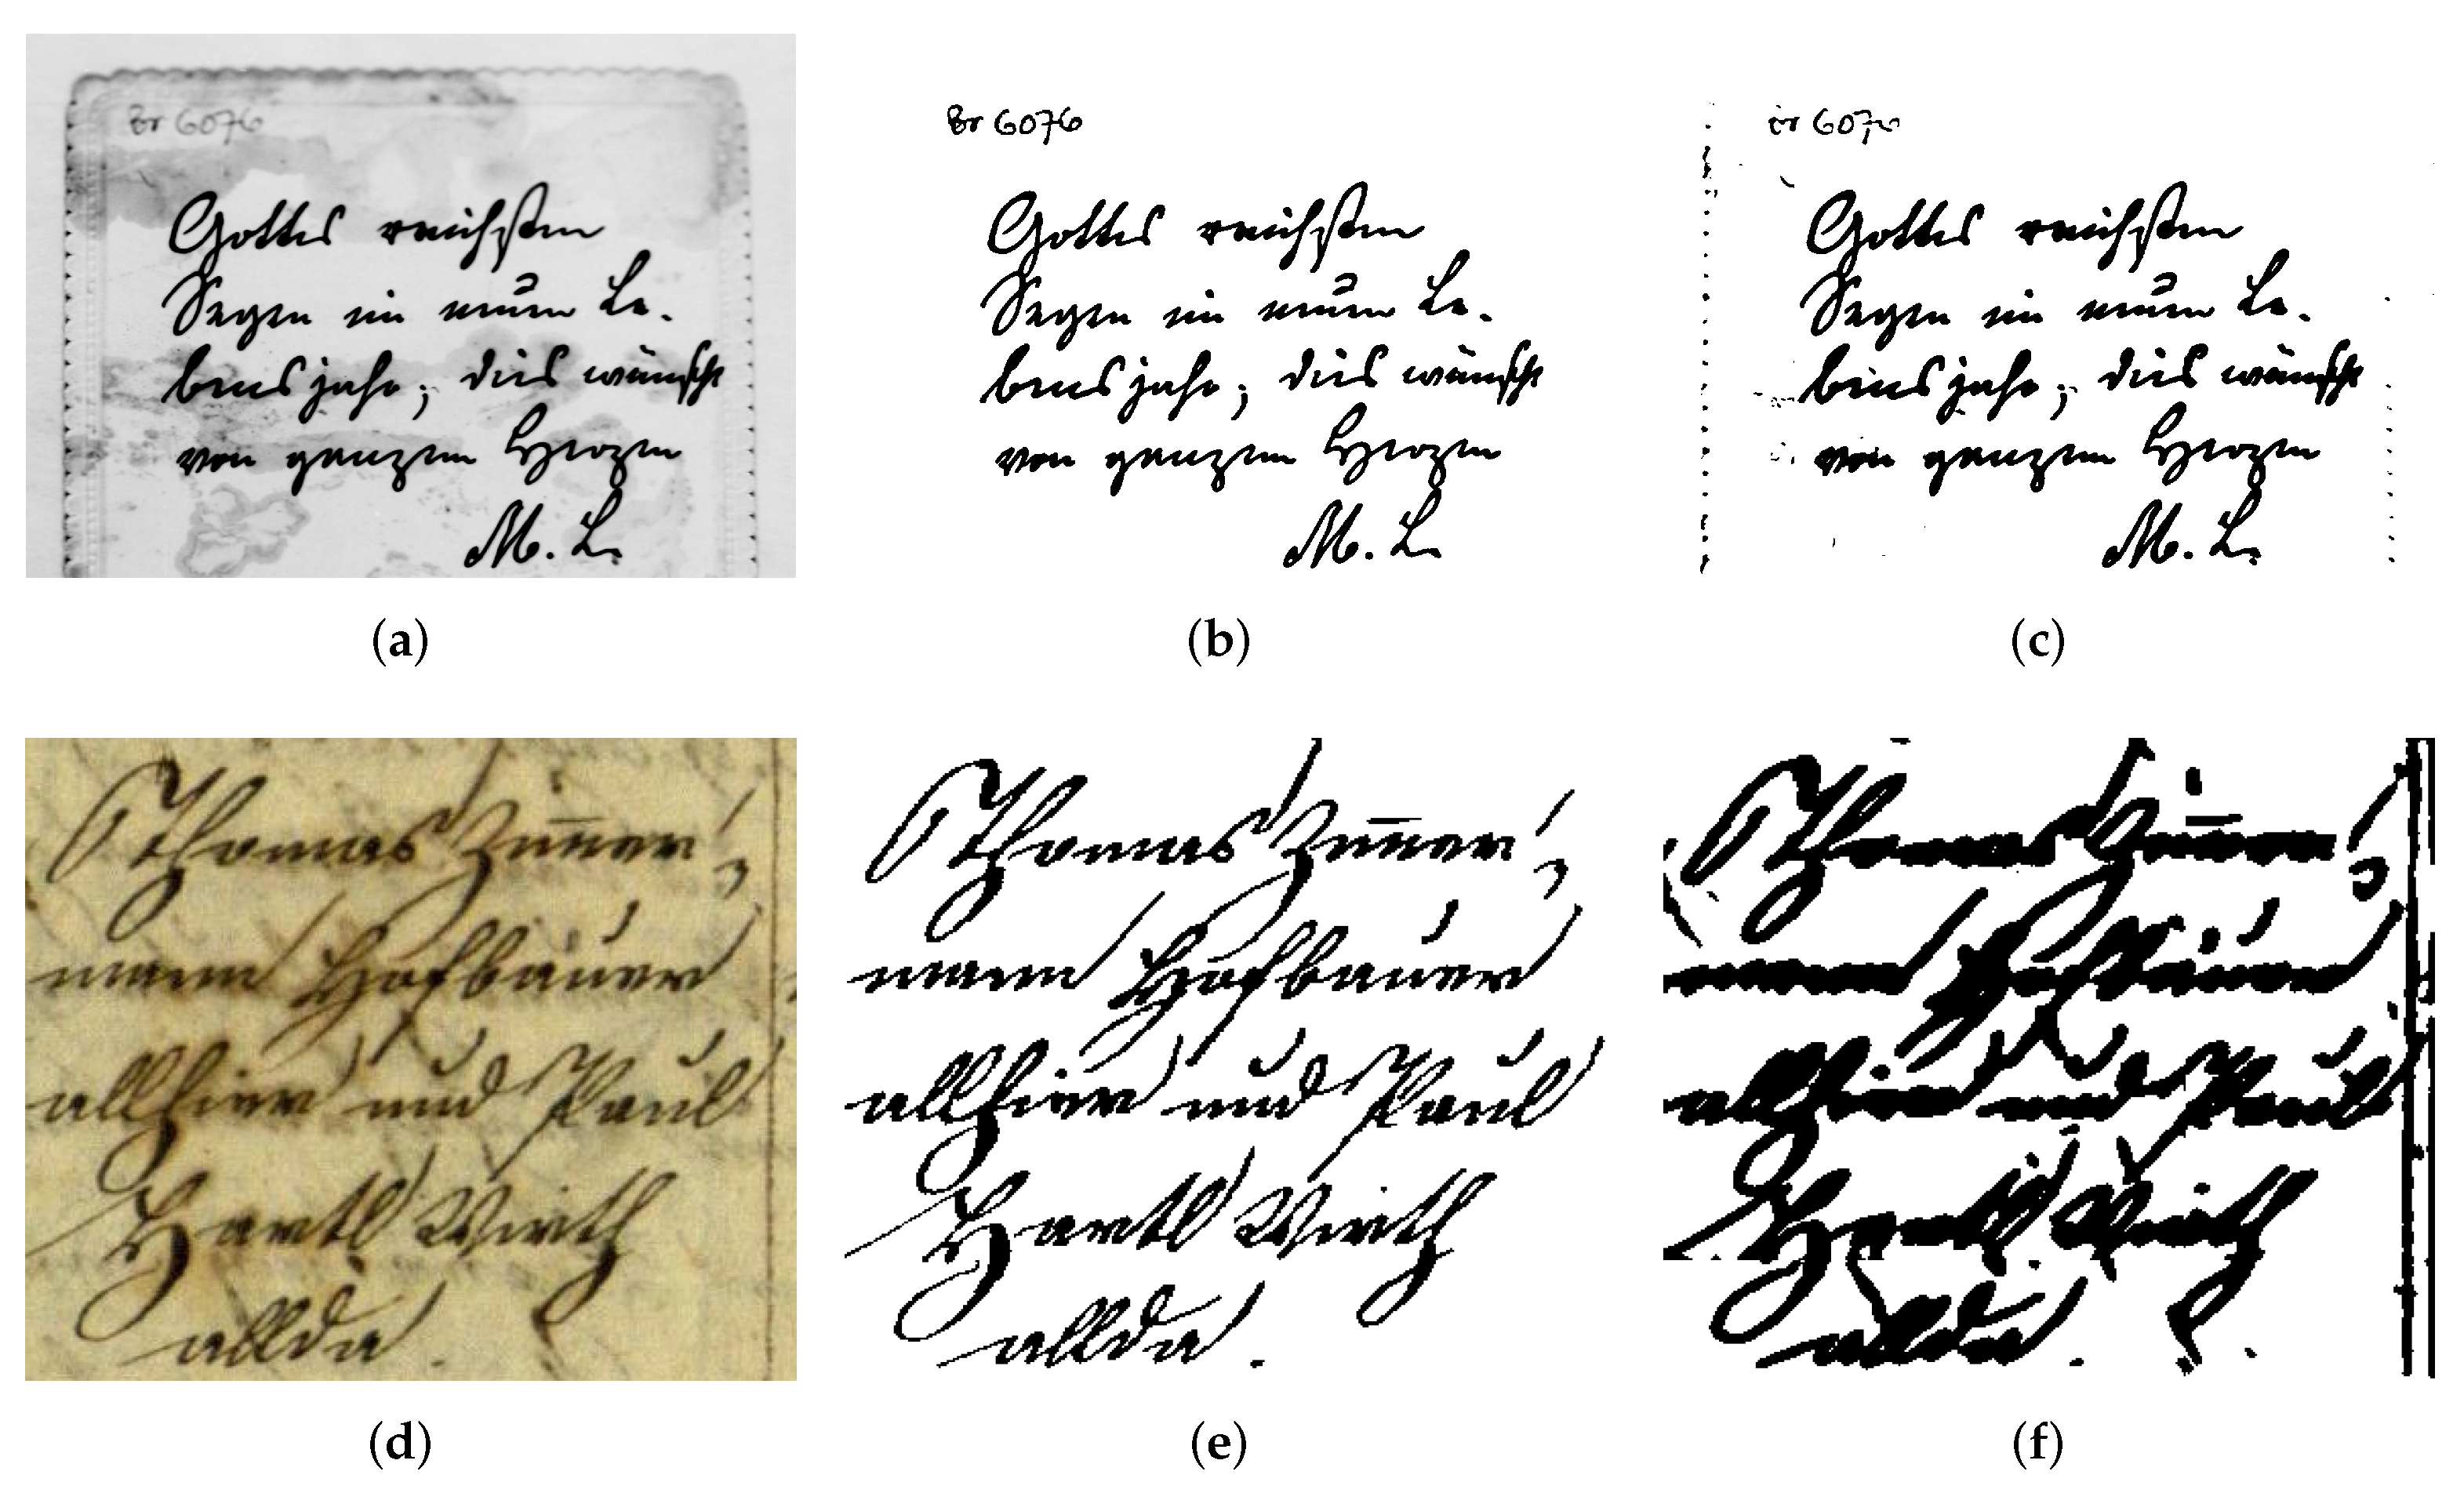 Br 6076
Gottes reichsten
Segen im neuen Le-
bensjahr, dies wünscht
von ganzem Herzen
M. L.
(a)
Br 6076
Gottes reichsten
Segen im neuen Le-
bensjahr, dies wünscht
von ganzem Herzen
M. L.
(b)
6076
Gottes reichsten
Segen im neuen Le-
bensjahr, dies wünscht
von ganzem Herzen
M. L.
(c)
Thomas Zim̅er,
mann Hofbauer
allhier und Paul
Hartl Wirth
allda.
(d)
Thomas Zim̅er,
mann Hofbauer
allhier und Paul
Hartl Wirth
allda.
(e)
Thomas Zim̅er,
mann Hofbauer
allhier und Paul
Hartl Wirth
allda.
(f)